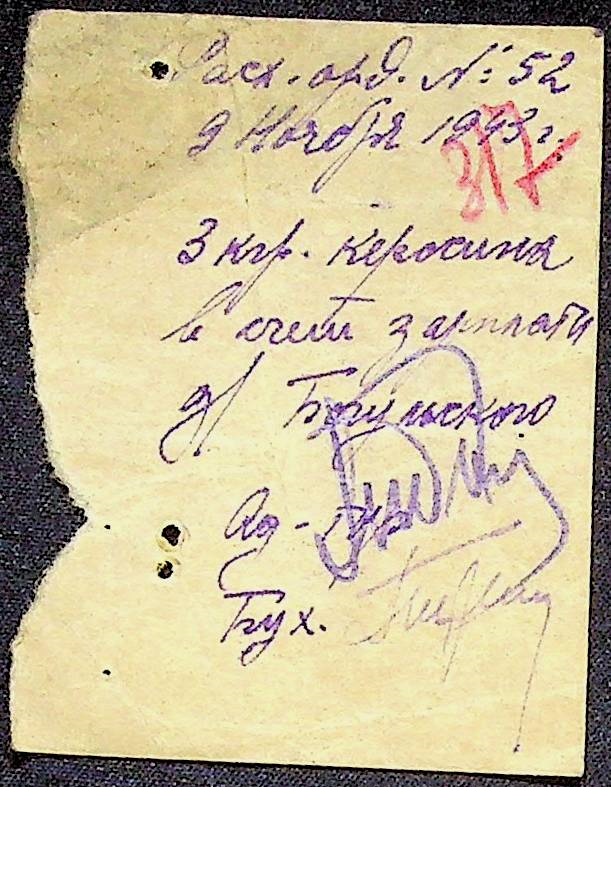 Расх. орд. №: 52
9 Ноября 1943 г.
317
3 кгр. керосина
в счет зарплаты
д/ Богульского
Ад-
Бух.